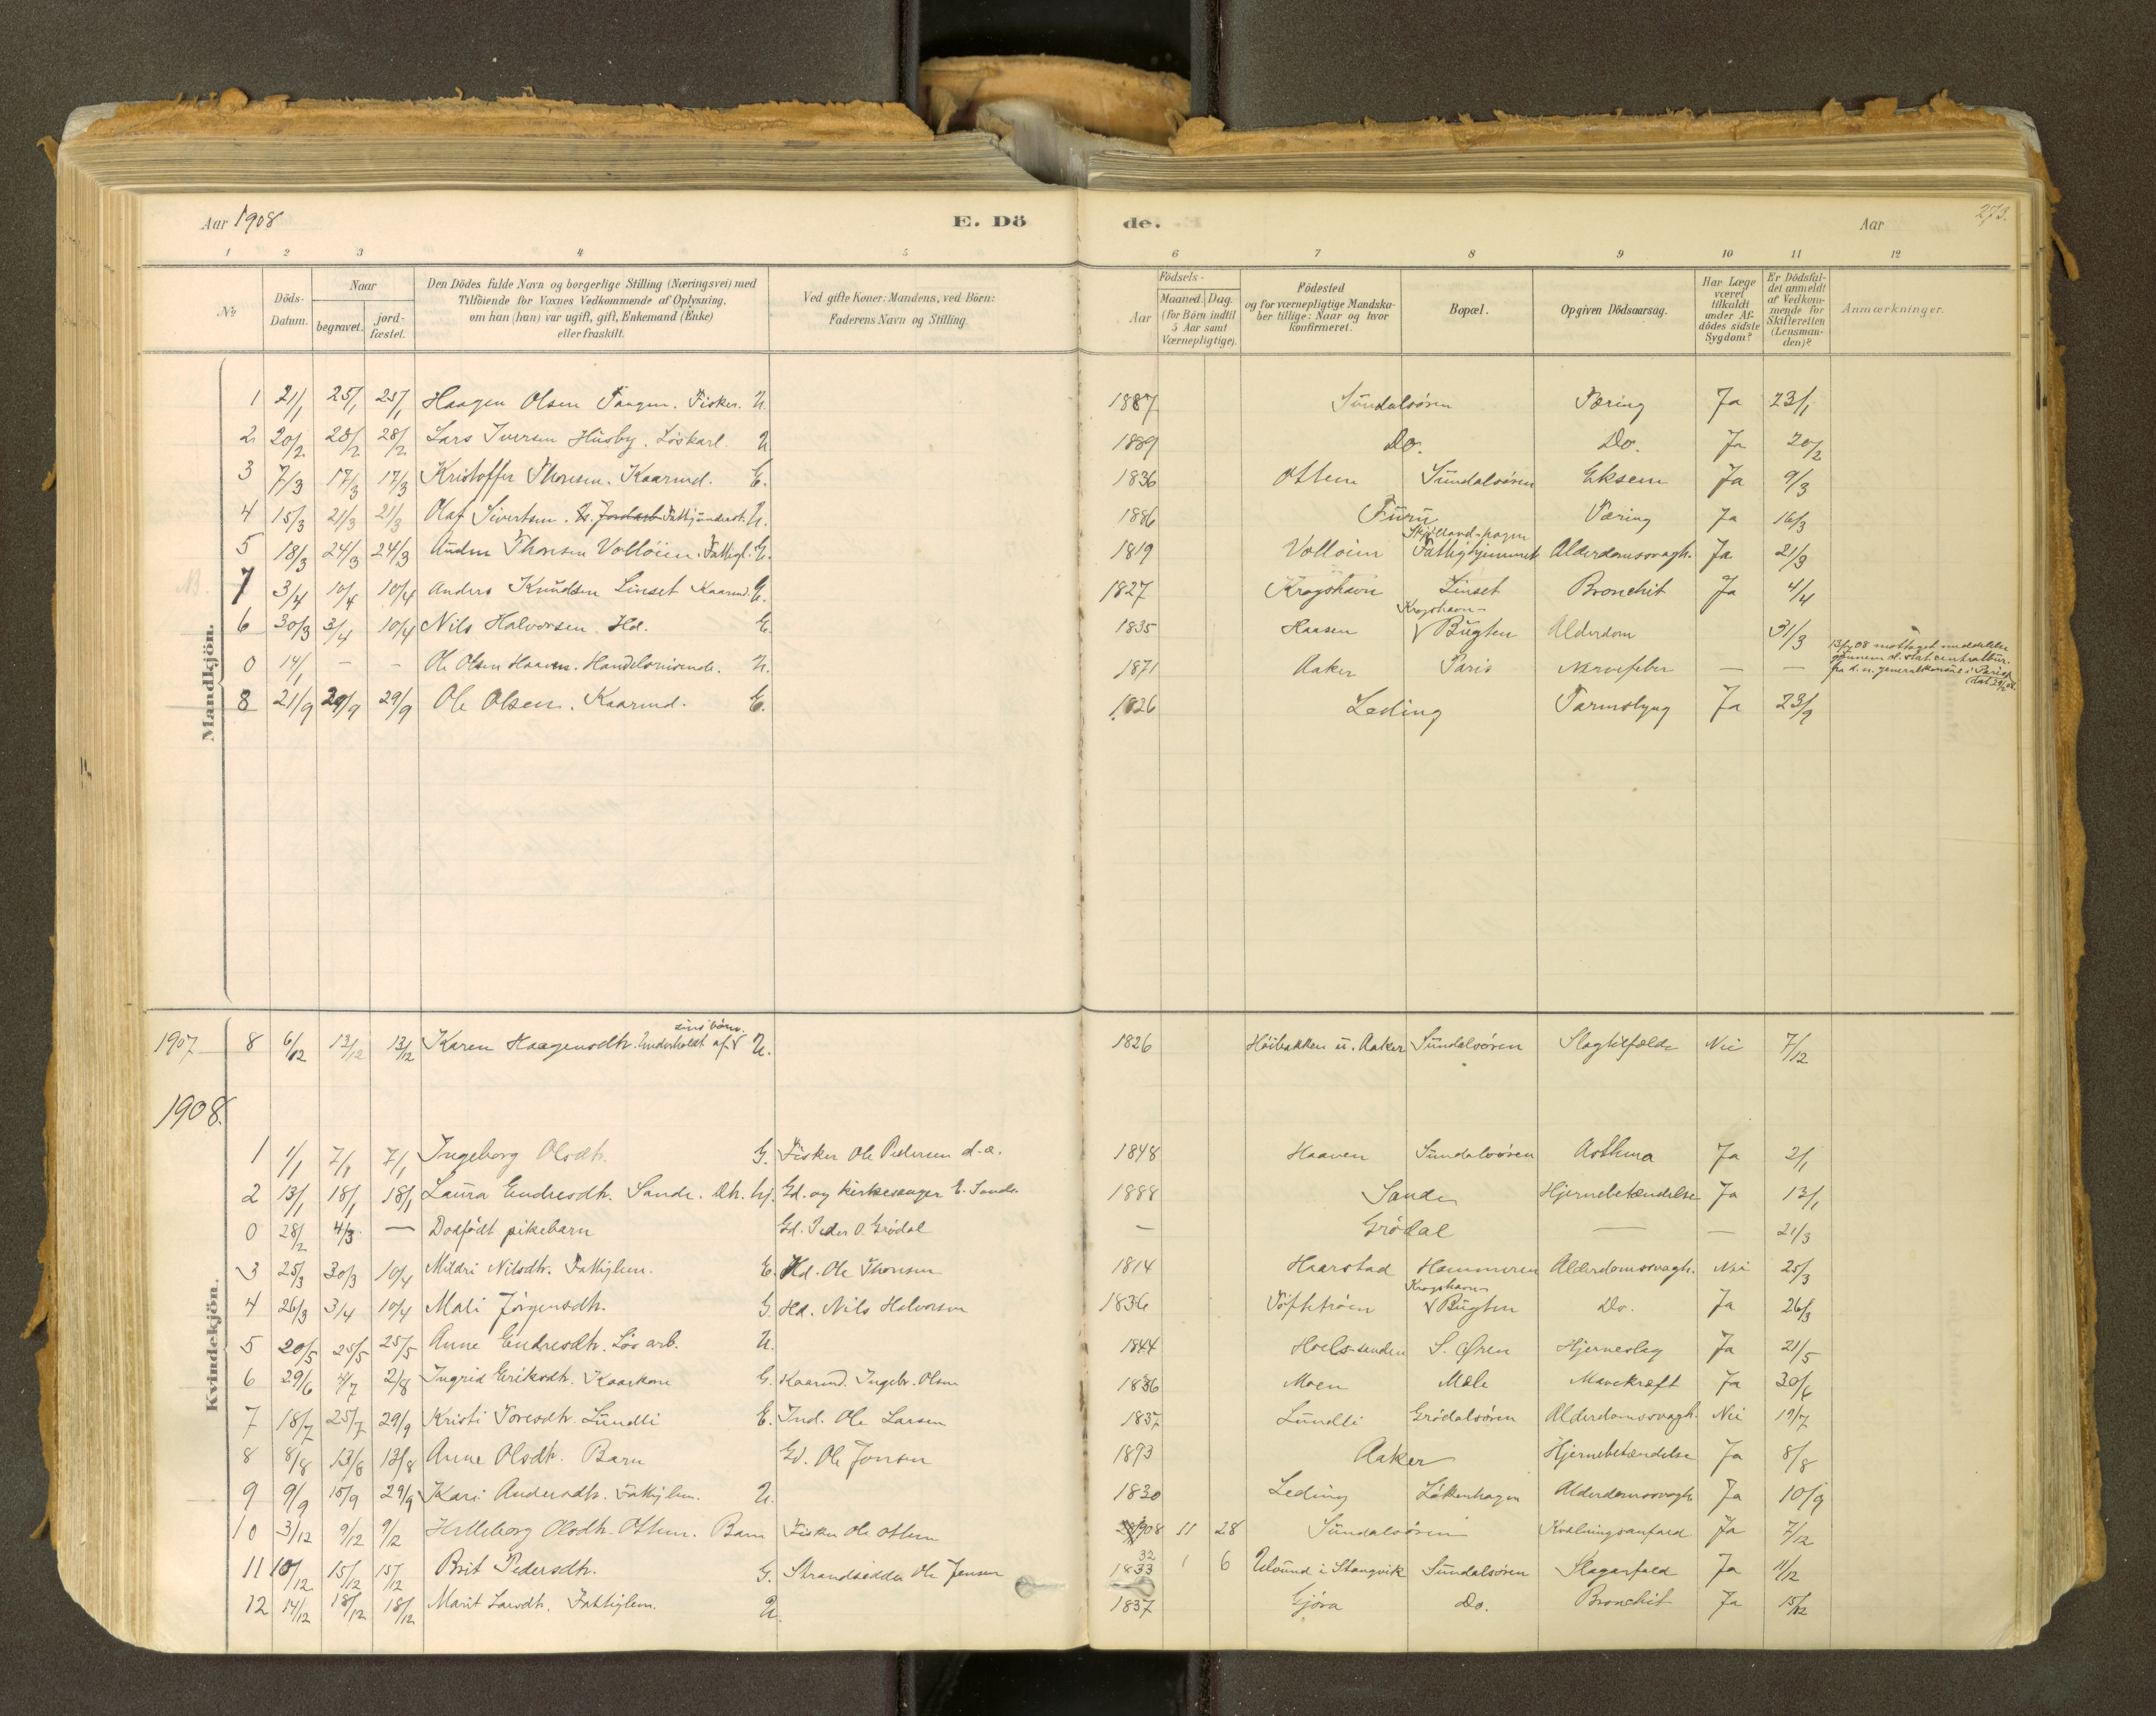 Aar 1908 E. Dö de. Aar 273.
1 2 3 4 5 6 7 8 9 10 11 12
No. Döds-Datum. Naar begravet. jord-fæstet. Den Dödes fulde Navn og borgerlige Stilling (Næringsvei) med Tilföiende for Voxnes Vedkommende af Oplysning, om han (hun) var ugift, gift, Enkemand (Enke) eller fraskilt. Ved gifte Koner: Mandens, ved Börn: Faderens Navn og Stilling. Födsels- Aar Maaned. Dag. (for Börn indtil 5 Aar samt Værnepligtige). Födested og for værnepligtige Mandskaber tillige: Naar og hvor konfirmeret. Bopæl. Opgiven Dödsaarsag. Har Læge været tilkaldt under Afdödes sidste Sygdom? Er Dödsfaldet anmeldt af Vedkommende for Skifteretten (Lensmanden)? Anmærkninger.
Mandkjön.
1 21/1 25/1 25/1 Haagen Olsen Tangen. Fisker. U. 1887 Sündalsören Tæring Ja 23/1
2 20/2 28/2 28/2 Lars Iversen Hüsby. Löskarl. U 1889 Do. Do. Ja 20/2
3 7/3 17/3 17/3 Kristoffer Thoresen. Kaarmd. E. 1836 Ottem Sündalsören Eksem Ja 9/3
4 15/3 21/3 21/3 Olaf Sivertsen. Fattigünderst. U. 1886 Fürü Tæring Ja 16/3
5 18/3 24/3 24/3 Anden Thoresen Vollöien. Fattigl. E. 1819 Volloien Skjölland-hagen Fattighjemmet Alderdomssvagh. Ja 21/3
7 3/4 10/4 10/4 Anders Knüdsen Linset Kaarmd. E. 1827 Kragshavn Linset Bronchit Ja 4/4
6 30/3 3/4 10/4 Nils Halvorsen. Hd. E. 1835 Haasen Kragshavn- Bügten Alderdom 31/3
0 14/1 - - Ole Olsen Haaven. Handelsreisende. U. 1871 Aaker Paris Nervefeber - - 13/7 08 mottaget meddelelse gjennem d. stat. centralbür. fra d. n. generalkonsul i Paris,
8 21/9 29/9 29/9 Ole Olsen. Kaarmd. E. 1826 Leding Tarmslyng Ja 23/9
1907 8 6/12 13/12 13/12 Karen Haagensdtr. Underholdt af sine börn. U. 1826 Höibakken ü. Aaker Sündalsören Slagtilfælde Nei 7/12
1908.
Kvindekjön.
1 1/1 7/1 7/1 Ingeborg Olsdtr. G. Fisker Ole Pedersen d.æ. 1848 Haaven Sündalsören Asthma Ja 2/1
2 13/1 18/1 18/1 Laüra Endresdtr. Sande. Dtr. hj. Gd. og kirkesanger E. Sande 1888 Sande Hjernebetændelse Ja 13/1
0 28/2 4/3 - Dödfödt pikebarn Gd. Peder O. Grödal - Grödal - - 21/3
3 25/3 30/3 10/4 Mildri Nilsdtr. Fattiglem. E. Hd. Ole Thoresen 1814 Haarstad Hammeren Alderdomssvagh. Nei 25/3
4 26/3 3/4 10/4 Mali Jörgensdtr. G Hd. Nils Halvorsen 1836 Töftetröen Kragshavn- Bügten Do. Ja 26/3
5 20/5 25/5 25/5 Anne Endresdtr. Lös arb. U. 1844 Hoels-sanden S. Øren Hjerneslag Ja 21/5
6 29/6 4/7 2/8 Ingrid Eriksdtr. Kaarkone G. Kaarmd. Ingebr. Olsen 1836 Moen Mæle Mavekræft Ja 30/6
7 18/7 25/7 29/9 Kristi Toresdtr. Lündli E. Ind. Ole Larsen 1837 Lündli Grödalsören Alderdomssvagh. Nei 19/7
8 8/8 13/8 13/8 Anne Olsdtr. Barn Gd. Ole Jonsen 1893 Aaker Hjernebetændelse Ja 8/8
9 9/9 15/9 29/9 Kari Andersdtr. Fattiglem. U. 1830 Leding Løkkenhagen Alderdomssvagh Ja 10/9
10 3/12 9/12 9/12 Hilleborg Olsdtr. Ottem. Barn Fisker Ole Ottem 1908 11 28 Sündalsören Kvælningsanfald Ja 7/12
11 10/12 15/12 15/12 Brit Pedersdtr. G. Strandsidder Ole Jensen 32 1833 1 6 Ulvünd i Stangvik Sündalsören Slaganfald Ja 11/12
12 14/12 18/12 18/12 Marit Larsdtr. Fattiglem. U. 1837 Gjöra Do. Bronchit Ja 15/12